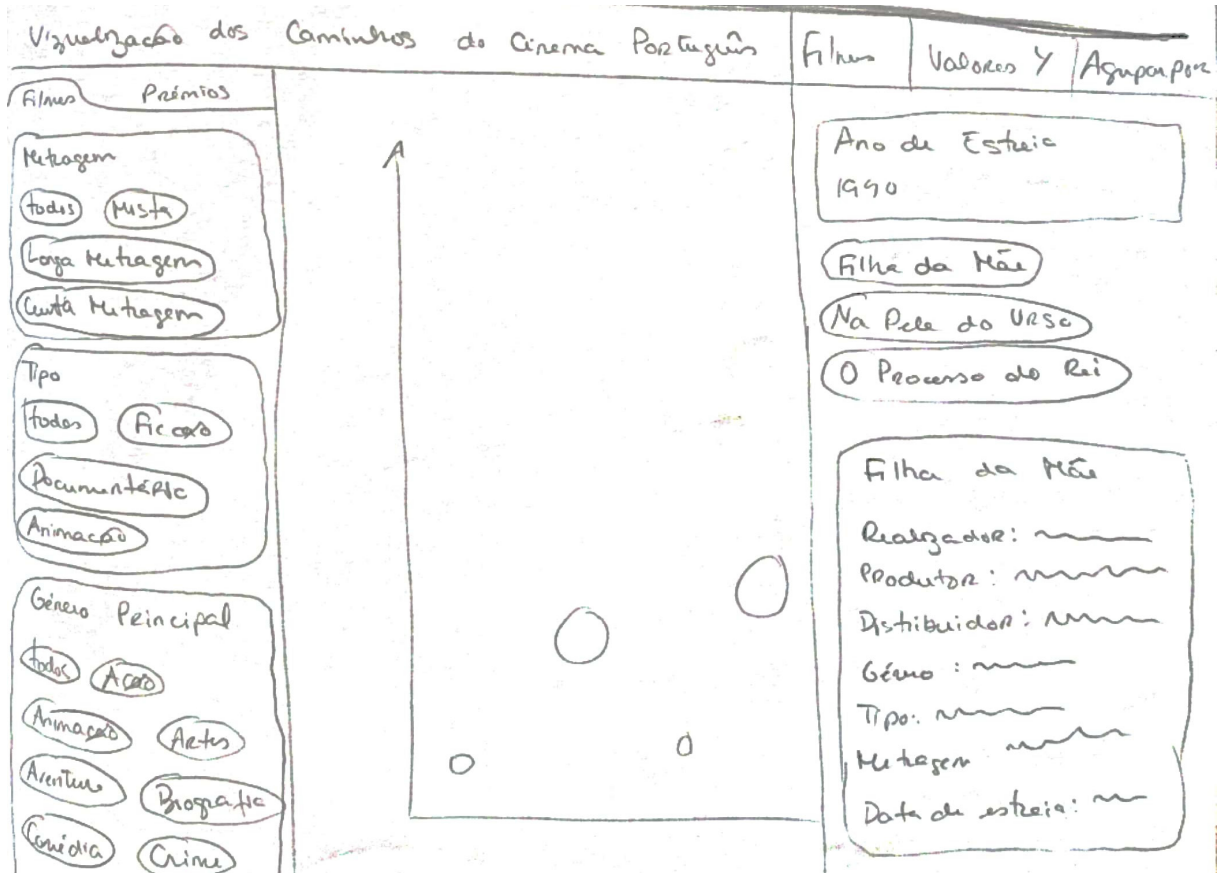 Vizualização dos Caminhos do Cinema Português
Filmes
Valores Y
Agrupar por
Filmes
Prémios
Metragem
todos
Mista
Longa Metragem
Curta Metragem
Tipo
todos
Ficção
Documentário
Animação
Género Principal
todos
Ação
Animação
Artes
Aventura
Biografia
Comédia
Crime
Ano de Estreia
1990
Filha da Mãe
Na Pele do Urso
O Processo do Rei
Filha da Mãe
Realizador:
Produtor:
Distribuidor:
Género:
Tipo:
Metragem
Data de estreia: